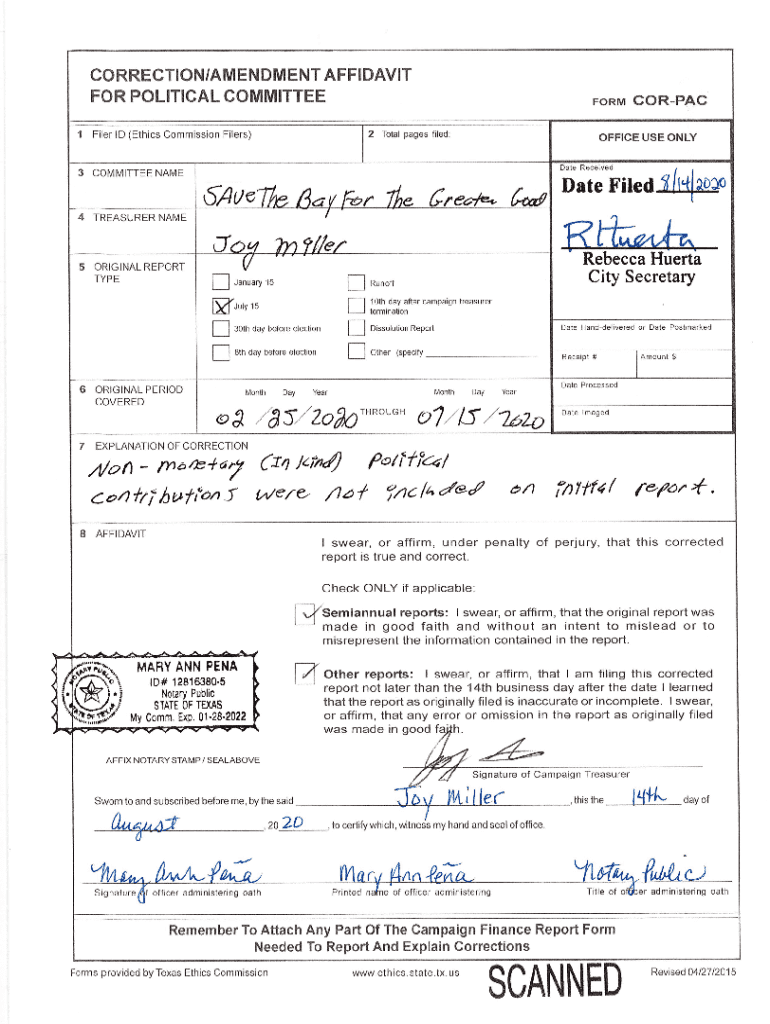 CORRECTION/AMENDMENT AFFIDAVIT
FOR POLITICAL COMMITTEE
FORM COR-PAC
1 Filer ID (Ethics Commission Filers)
2 Total pages filed:
OFFICE USE ONLY
3 COMMITTEE NAME
SAVe The Bay For The Greater Good
Date Received
Date Filed 8/14/2020
4 TREASURER NAME
Joy Miller
RHuerta
Rebecca Huerta
City Secretary
5 ORIGINAL REPORT
TYPE
January 15
Runoff
X July 15
10th day after campaign treasurer
termination
30th day before election
Dissolution Report
8th day before election
Other (specify
Date Hand-delivered or Date Postmarked
Receipt #
Amount $
6 ORIGINAL PERIOD
COVERED
Month Day Year
Month Day Year
02 /25/2020 THROUGH 07/15/2020
Date Processed
Date Imaged
7 EXPLANATION OF CORRECTION
Non - monetary (In Kind) Political
contributions were not included on initial report.
8 AFFIDAVIT
I swear, or affirm, under penalty of perjury, that this corrected
report is true and correct.
Check ONLY if applicable:
Semiannual reports: I swear, or affirm, that the original report was
made in good faith and without an intent to mislead or to
misrepresent the information contained in the report.
Other reports: I swear, or affirm, that I am filing this corrected
report not later than the 14th business day after the date I learned
that the report as originally filed is inaccurate or incomplete. I swear,
or affirm, that any error or omission in the report as originally filed
was made in good faith.
NOTARY PUBLIC
STATE OF TEXAS
MARY ANN PENA
ID# 12816380-5
Notary Public
STATE OF TEXAS
My Comm. Exp. 01-28-2022
AFFIX NOTARY STAMP / SEALABOVE
Signature of Campaign Treasurer
Sworn to and subscribed before me, by the said Joy Miller , this the 14th day of
August , 20 20 , to certify which, witness my hand and seal of office.
Mary Ann Peña
Mary Ann Peña
Notary Public
Signature of officer administering oath
Printed name of officer administering
Title of officer administering oath
Remember To Attach Any Part Of The Campaign Finance Report Form
Needed To Report And Explain Corrections
Forms provided by Texas Ethics Commission
www.ethics.state.tx.us
SCANNED
Revised 04/27/2015